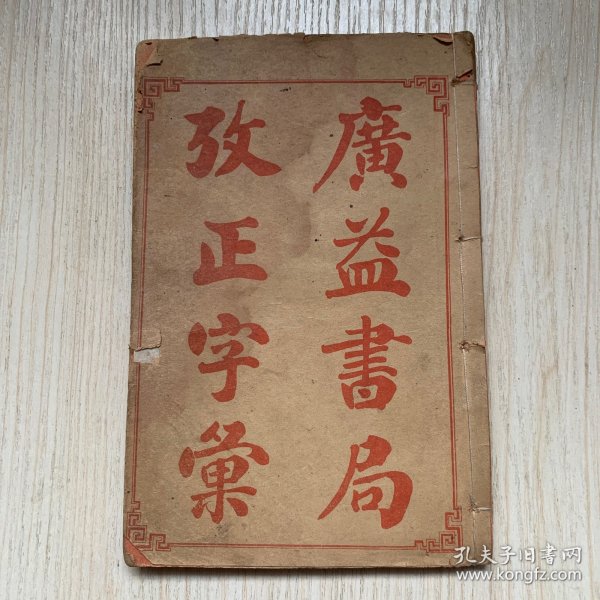 廣益書局
攷正字彙
孔夫子旧书网
www.kongfz.com